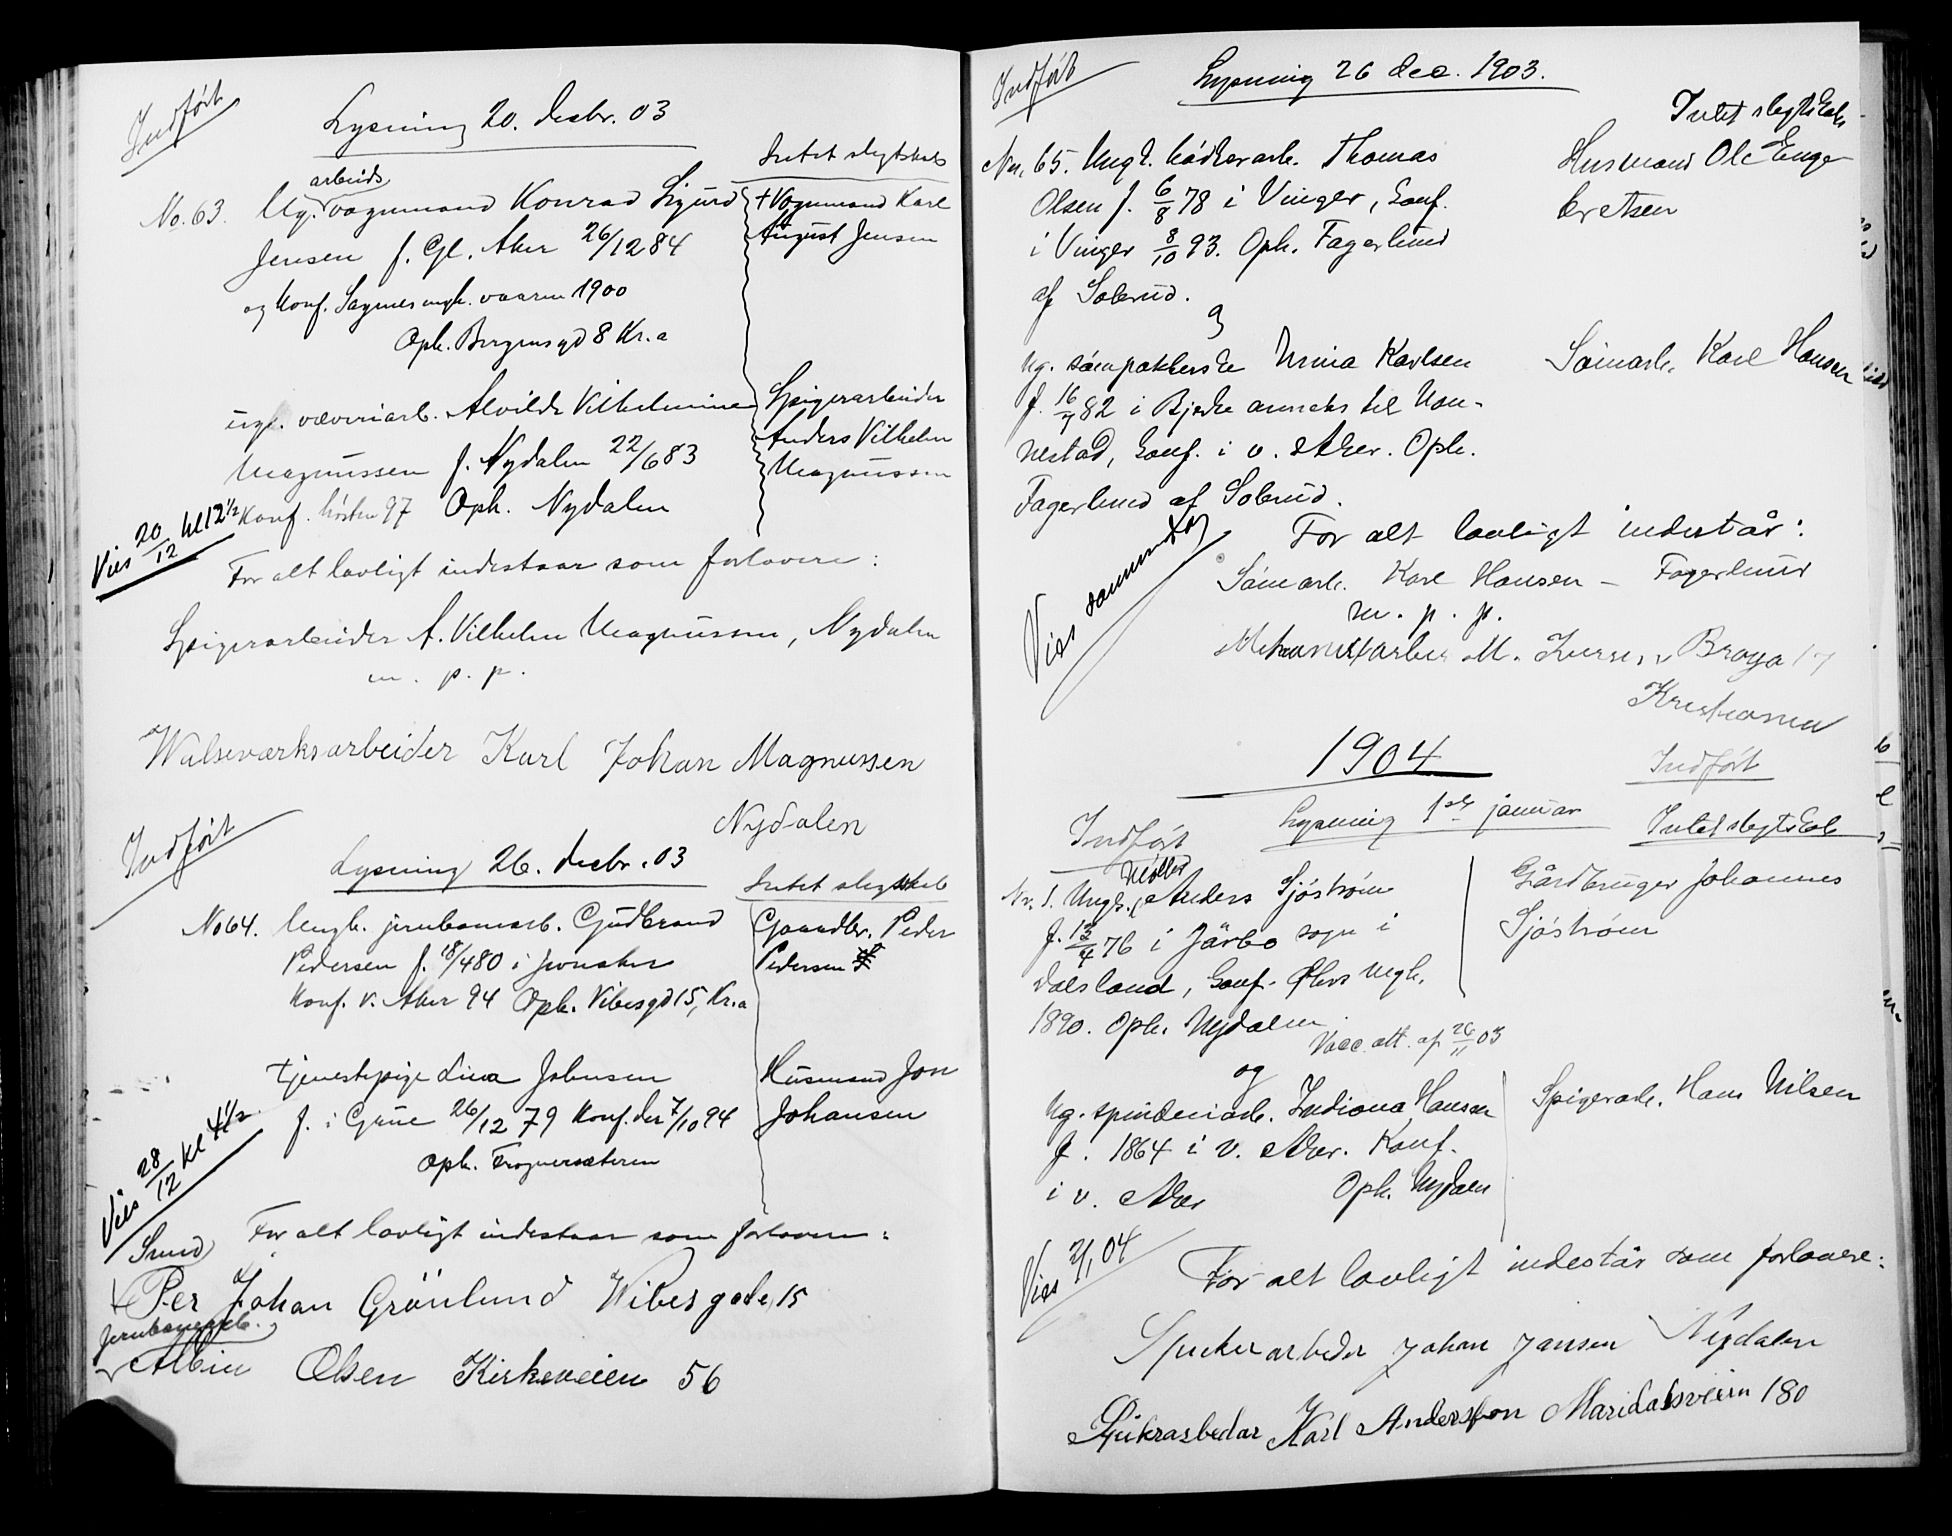 Indført
Lysning 20. Decbr. 03
Intet slegtskab
arbeids
No. 63. Ug. vognmand Konrad Sigurd
Jensen f. Gl. Aker 26/12 84
og Konf. Sagenes mgh. vaaren 1900
Oph. Bergensgd 8 Kr.a
+ Vognmand Karl
August Jensen
ugl. væveriarb. Alvilde Vilhelmine
Magnussen f. Nydalen 22/6 83
Konf. høsten 97 Oph. Nydalen
Spigerarbeider
Anders Vilhelm
Magnussen
Vies 20/12 kl 12 1/2
For alt lovligt indestaar som forlovere:
Spigerarbeider A. Vilhelm Magnussen, Nydalen
m. p. p.
Walseværksarbeider Karl Johan Magnussen
Nydalen
Indført
Lysning 26. Decbr. 03
Intet slegtskab
No 64. Ungk. jernbanearb. Gudbrand
Pedersen f. 18/4 80 i Jevnaker
Konf. v. Aker 94 Oph. Vibesgd 15, Kr.a
Gaardbr. Peder
Pedersen
Tjenestepige Lina Johnsen
f. i Grue 26/12 79 Konf. der 7/10 94
Oph. Frognersæteren
Husmand Jon
Johansen
Vies 28/12 kl 4 1/2
For alt lovligt indestaar som forlovere:
Smed
Per Johan Grönlund Wibesgade 15
Jernbanearb.
Albin Olsen Kirkeveien 56
Indført
Lysning 26 dec. 1903.
Intet slegtskab
No. 65. Ungk. bødkerarb. Thomas
Olsen f. 6/8 78 i Vinger, konf.
i Vinger 8/10 93. Oph. Fagerlund
af Soberud.
Husmand Ole Enge
bretsen
og
Ug. sømpakkerske Mina Karlsen
f. 16/7 82 i Bjerke anneks til Nan-
nestad, konf. i v. Aker. Oph.
Fagerlund af Soberud.
Sømarb. Karl Hansen
Vies sammendag
For alt lovligt indestår:
Sømarb. Karl Hansen – Fagerlund
m. p. p.
M. Iversen Braga 17
Kristiania
1904
Indført
Indført
Lysning 1ste januar
Intet slegtskab
Møller
Nr. 1. Ungk. Anders Sjöström
f. 13/4 76 i Järbo sogn i
Dalsland, konf. Ølers Mgh.
1890. Oph. Nydalen.
Vacc. att. af 26/11 03
Gårdbruger Johannes
Sjöström
og
Ug. spinderiarb. Indiana Hansen
f. 1864 i v. Aker. Konf.
i v. Aker Oph. Nydalen
Spigerarb. Hans Nilsen
Vies 2/1 04
For alt lovligt indestår som forlovere:
Spikerarbeder Johan Jansen Nydalen
Spikrarbedar Karl Andersson Maridalsveien 180